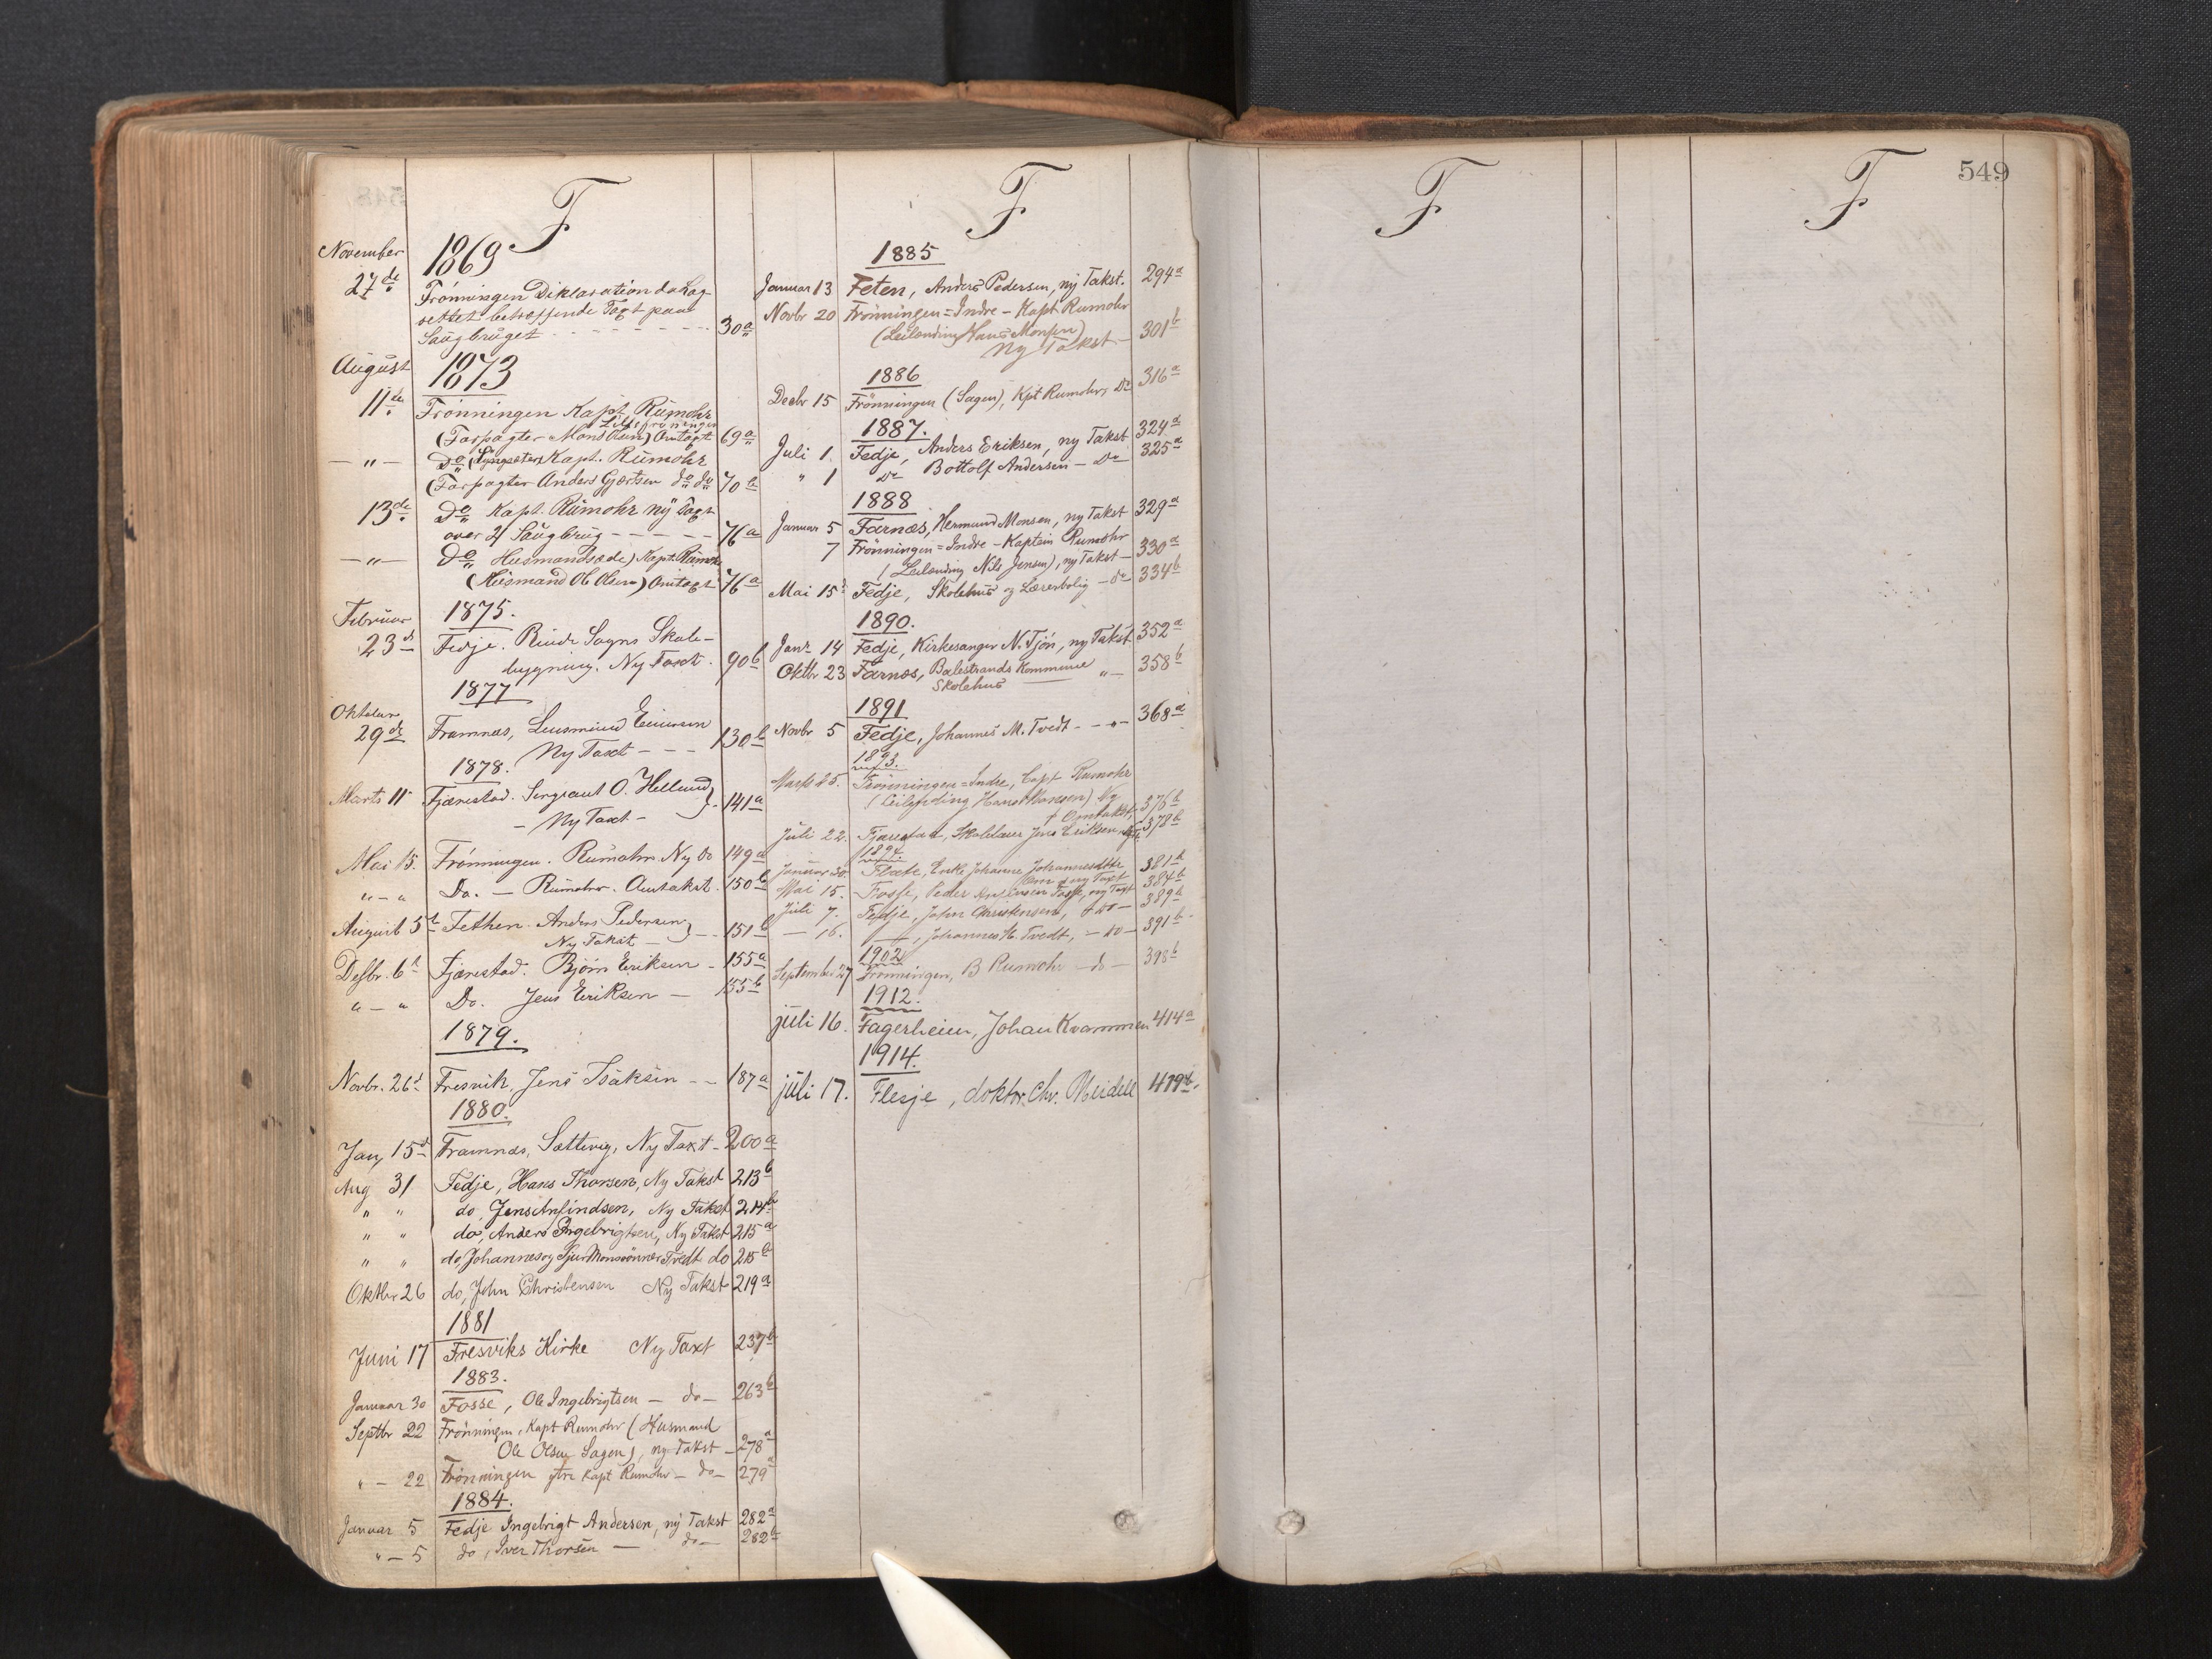 F
November
1869
27de
Frönningen Deklaration da Lag-
rettet betræffende Taxt paa
Saugbruget - - - - - - - 30a
August
1873
11te
Frönningen Kapt Rumohr
(Forpagter Mons Olsen) Omtaxt 69a
— " — Do Kapt. Rumohr
(Forpagter Anders Gjertsen do do 70a
13de Do Kapt. Rumohr ny Taxt
over 2 Saugbrug - - - - - 76a
— " — Do Husmandsæde) Kapt. Rumohr
(Husmand Ole Olsen) Omtaxt 76a
Februar
1875.
23de Fedje. Sogns Skole-
bygning. Ny Taxt. 90b
1877
Oktober
29de Framnæs, Lensmand Einersen
Ny Taxt - - - 130b
1878.
Marts 11 Fjærestad. Sergeant O. Helland
- Ny Taxt - 141a
Mai 15. Frönningen. Rumohr. Ny do 149a
" - " Do. - Rumohr. Omtakst. 150b
August 5te Fethen. Anders Pedersen
Ny Takst - 151b
Desbr. 6te Fjærestad. Bjørn Eriksen - 155a
" - " Do. Jens Eriksen - 155b
1879.
Novbr. 26de Fresvik, Jens Isaksen - - 187a
1880.
Jany 15de Framnæs, Sættevig, Ny Taxt - 200a
Aug 31 Fedje, Hans Thorsen, Ny Takst 213b
" " do, Jens Anfindsen, Ny Takst 214b
" " do, Anders Ingebrigtsen, Ny Takst 215a
" " do, Johannes og Sjur Monssønner Tvedt do 215b
Oktbr 26 do, John Christensen Ny Takst 219a
1881
Juni 17 Fresviks Kirke Ny Taxt 237b
1883.
Januar 30 Fosse, Ole Ingebrigtsen - do - 263b
Septbr 22 Frönningen, Kapt Rumohr (Husmand
Ole Olsen Sagen), ny Takst - 278a
" - 22 Frönningen ytre Kapt Rumohr - do - 279a
1884.
Januar 5 Fedje Ingebrigt Andersen, ny Takst 282a
" - 5 do, Iver Thorsen - do - 282b
F
1885
Januar 13 Feten, Anders Pedersen, ny Takst. 294a
Novbr 20 Frönningen = Indre - Kapt Rumohr
(Leilending Hans Monsen)
Ny Takst - 301b
1886
Decbr 15 Frönningen (Sagen), Kpt Rumohr, Do 316a
1887.
Juli 1. Fedje, Anders Eriksen, ny Takst 324a
" 1 Do Bottolf Andersen - Do - 325a
1888
Januar 5 Farnæs, Hermund Monsen, ny Takst 329a
7 Frönningen = Indre - Kaptein Rumohr
(Leilending Nils Jensen), ny Takst - 330a
Mai 15de Fedje, Skolehus og Lærerbolig - do - 334b
1890.
Janr 14 Fedje, Kirkesanger N. Tjøn, ny Takst 352a
Oktbr 23 Farnæs, Balestrands Kommune " — 358b
Skolehus
1891
Novbr 5 Fedje, Johannes M. Tvedt - - " - 368a
1893.
Marts 25. Frönningen = Indre, Capt Rumohr
(Leilending Hans Monsen) Ny
+ Omtakst, 376b
Juli 22. Fjærestad, Skolelærer Jens Eriksen, 378b
1894.
Januar 30. Enke Johanne Johannesdtr
Om og ny Taxt 381b
Mai 15. Fosse, Peder Fosse, ny Taxt 384b
Juli 7. Fedje, John Christensen, + do - 389b
— 16. —, Johannes M. Tvedt, - do - 391b
1902
September 27 Frönningen, B Rumohr - do - 398b
1912.
juli 16. Fagerheim, Johan Kvammen 414a
1914.
juli 17. Flesje, doktor. Chr. Meidell 419b.
F
F
549